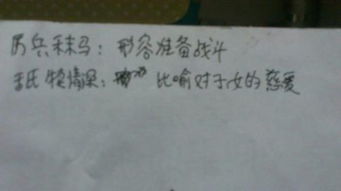 厉兵秣马：形容准备战斗
舐犊情深：比喻对子女的慈爱